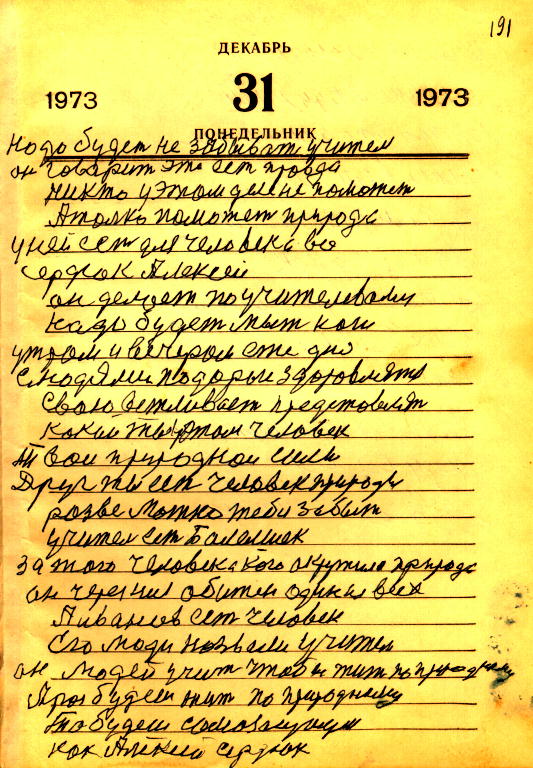 191
ДЕКАБРЬ
1973 31 1973
ПОНЕДЕЛЬНИК
Надо будет не забиват учител
он говарит эта ест правда
никто у этом деле не поможет
А толко поможет природа
у ней ест для человека во
Алексей
он делоет по учителевому
надо будет мыт ноги
утром и вечером
с людями здоровлятя
свою ветливаст представлят
какий ты у том человек
Твои природнои сили
Друг ты ест человек природи
розве можно тебя забыт
учител ест
за того человека кого окружила природа
он через них обижен один и всех
Иванов ест человек
Его люди назвали учител
он людей учит чтобы жит по природному
будеш жит по природному
то будеш
как Алексей